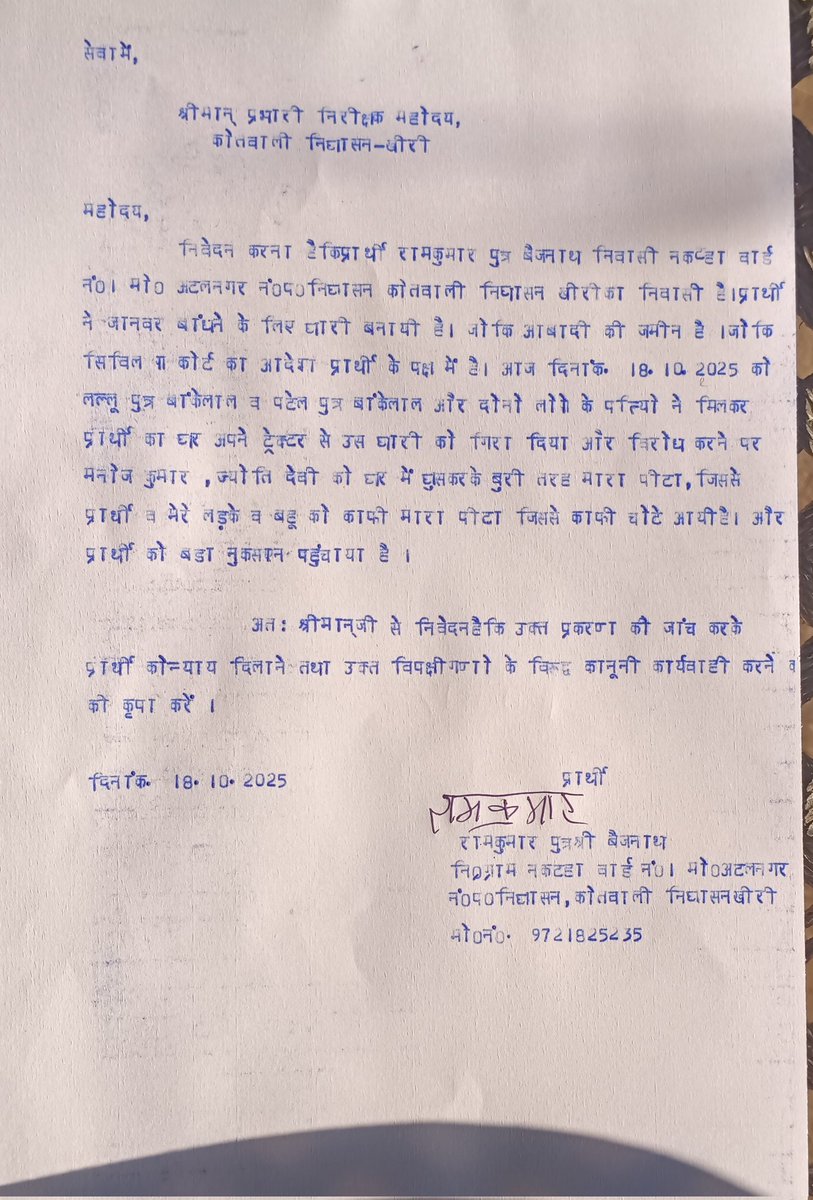 सेवामें,
श्रीमान् प्रभारी निरीक्षक महोदय,
कोतवाली निघासन-खीरी
महोदय,
निवेदन करना हैकिप्रार्थी रामकुमार पुत्र बैजनाथ निवासी नकटहा वार्ड
नं०। मो० अटलनगर नं०प०निघासन कोतवाली निघासन खीरीका निवासी है।प्रार्थी
ने जानवर बांधने के लिए घारी बनायी है। जोकि आबादी की जमीन है ।जोकि
सिविल कोर्ट का आदेश प्रार्थी के पक्ष में है। आज दिनांक. 18.10.2025 को
लल्लू पुत्र बांकेलाल व पटेल पुत्र बांकेलाल और दोनो लोगो के पत्नियो ने मिलकर
प्रार्थी का घर अपने ट्रेक्टर से उस घारी को गिरा दिया और विरोध करने पर
मनोज कुमार ,ज्योति देवी को घर में घुसकरके बुरी तरह मारा पीटा,जिससे
प्रार्थी व मेरे लड़के व बहू को काफी मारा पीटा जिससे काफी चोटे आयीहै। और
प्रार्थी को बडा नुकसान पहुंचाया है ।
अत: श्रीमान्जी से निवेदनहैकि उक्त प्रकरण की जांच करके
प्रार्थी कोन्याय दिलाने तथा उक्त विपक्षीगणो के विरूद्ध कानूनी कार्यवाही करने
की कृपा करें ।
दिनांक. 18.10.2025
प्रार्थी
रामकुमार
रामकुमार पुत्रश्री बैजनाथ
नि०ग्राम नकटहा वार्ड नं०। मो०अटलनगर
नं०प०निघासन,कोतवाली निघासनखीरी
मो०नं०. 9721825235